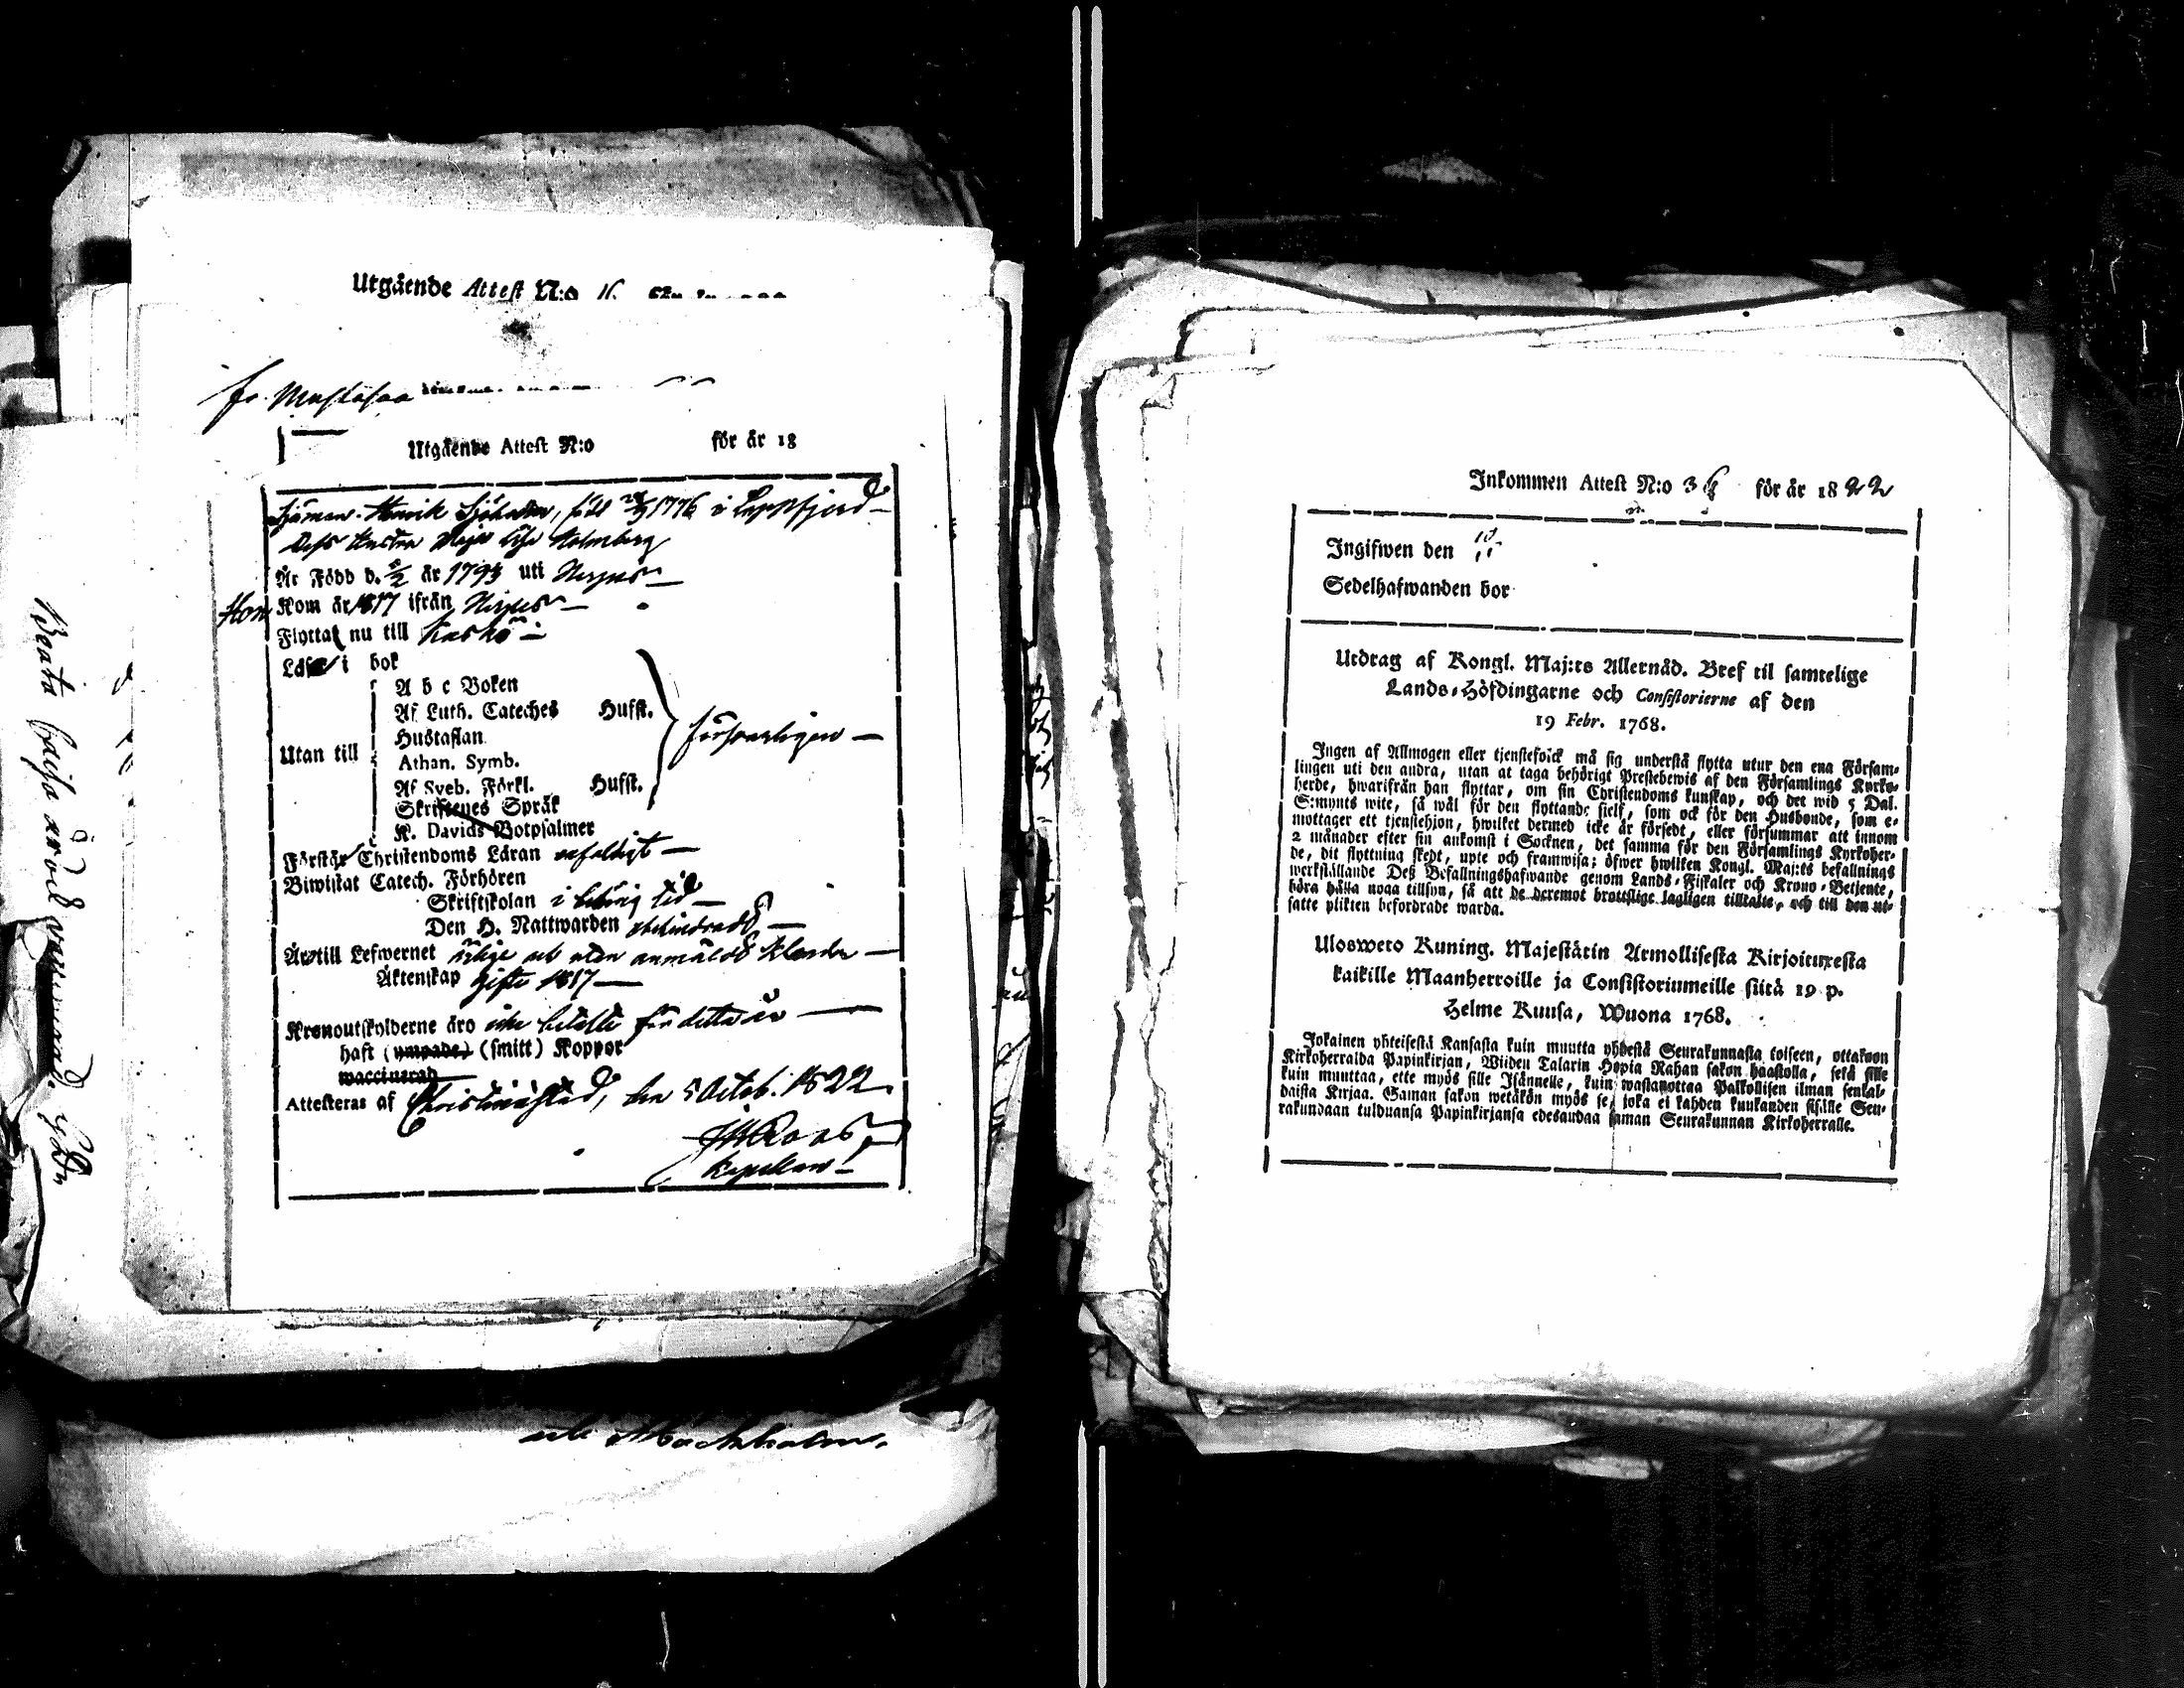 Utgående Attest N:o
fr. Mustasaa
Utgående Attest N:o för år 18
Sjöman Henrik Sjöholm, född 1776 i Lappfjerd
Dess Hustru Maja Lisa Holmberg
Är Född d. 2/2 år 1793 uti Nerpes
Hon Kom år 1817 ifrån Nerpes
Flytta nu till Kaskö
Läse i bok
A b c Boken
Af Luth. Cateches Hufst.
Hustaflan
Utan till Athan. Symb. försvarligen
Af Sveb. Förkl. Hufst.
Skriftenes Språk
K. Davids Botpsalmer
Förstår Christendoms Läran enfaldigt
Biwistat Catech. Förhören
Skriftskolan i behörig tid
Den H. Nattwarden obehindrade
Äro till Lefwernet ärlige och utan anmäldt klander
Äktenskap gifte 1817
Kronoutskylderne äro icke betalte för detta år
haft (ympade) (smitt) Koppor
waccinerad
Attesteras af Christinæstad, den 5 Octob. 1822.
Kapellan
Beata Caisa är väl vaccinerad.
och Stockholm.
Inkommen Attest N:o 36 för år 1822
Ingifwen den
Sedelhafwanden bor
Utdrag af Kongl. Maj:ts Allernåd. Bref til samtelige
Lands-Höfdingarne och Consistorierne af den
19 Febr. 1768.
Ingen af Allmogen eller tjenstefolck må sig understå flytta utur den ena Försam-
lingen uti den andra, utan at taga behörigt Prestebewis af den Församlings Kyrko-
herde, hwarifrån han flyttar, om sin Christendoms kunskap, och det wid 5 Dal.
S:mynts wite, så wäl för den flyttande sielf, som ock för den Husbonde, som e-
mottager ett tjenstehjon, hwilket dermed icke är försedt, eller försummar att innom
2 månader efter sin ankomst i Socknen, det samma för den Församlings Kyrkoher-
de, dit flyttning skedt, upte och framwisa; öfwer hwilken Kongl. Maj:ts befallnings
werkställande Deß Befallningshafwande genom Lands-Fiskaler och Krono-Betjente,
böra hålla noga tillsyn, så att de deremot brottslige lagligen tilltalte, och till den ut-
satte plikten befordrade warda.
Uloswero Kuning. Majestätin Armollisesta Kirjoituxesta
kaikille Maanherroille ja Consistoriumeille siitä 19 p.
Helme Kuusa, Wuona 1768.
Jokainen yhteisestä Kansasta kuin muutta yhdestä Seurakunnasta toiseen, ottakoon
Kirkoherralda Papinkirjan, Wiiden Talarin Hopia Rahan sakon haastolla, sekä sille
kuin muuttaa, ette myös sille Isännelle, kuin wastanottaa Palkollisen ilman senkal-
daista Kirjaa. Saman sakon wetäkön myös se, joka ei kahden kuukauden sisälle Seu-
rakundaan tulduansa Papinkirjansa edesandaa saman Seurakunnan Kirkoherralle.